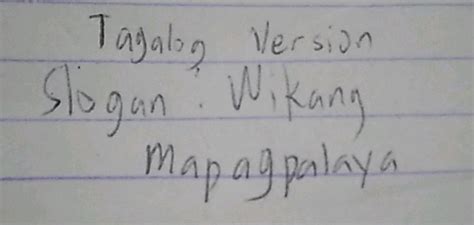 Tagalog Version
Slogan: Wikang
Mapagpalaya